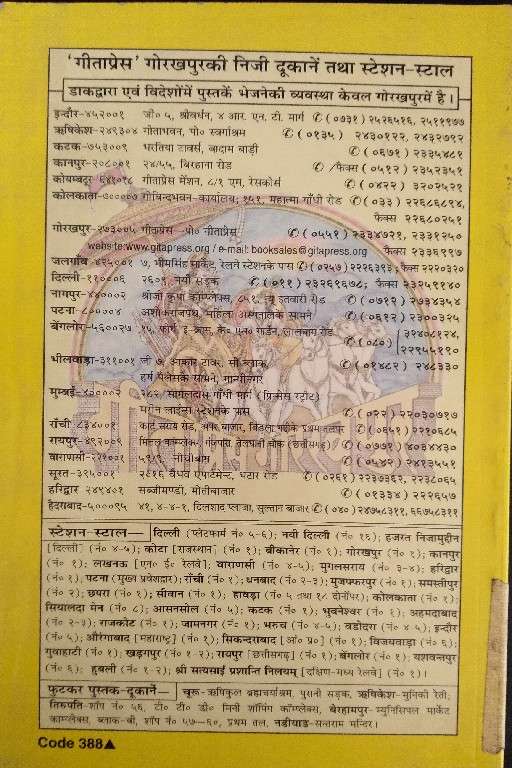 'गीताप्रेस' गोरखपुरकी निजी दूकानें तथा स्टेशन-स्टाल
डाकद्वारा एवं विदेशोंमें पुस्तकें भेजनेकी व्यवस्था केवल गोरखपुरमें है।
इन्दौर-४५२००१ जी० ५, श्रीवर्धन, ४ आर. एन. टी. मार्ग ✆ (०७३१) २५२६५१६, २५११९७७
ऋषिकेश-२४९३०४ गीताभवन, पो० स्वर्गाश्रम ✆ (०१३५) २४३०१२२, २४३२७९२
कटक-७५३००९ भरतिया टावर्स, बादाम बाड़ी ✆ (०६७१) २३३५४८१
कानपुर-२०८००१ २४/५५, बिरहाना रोड ✆ /फैक्स (०५१२) २३५२३५१
कोयम्बटूर-६४१०१८ गीताप्रेस मेंशन, ८/१ एम, रेसकोर्स ✆ (०४२२) ३२०२५२१
कोलकाता-७००००७ गोबिन्दभवन-कार्यालय; १५१, महात्मा गाँधी रोड ✆ (०३३) २२६८६८९४,
फैक्स २२६८०२५१
गोरखपुर-२७३००५ गीताप्रेस—पो० गीताप्रेस ✆ (०५५१) २३३४७२१, २३३१२५०
website:www.gitapress.org / e-mail: booksales@gitapress.org फैक्स २३३६९९७
जलगाँव-४२५००१ ७, भीमसिंह मार्केट, रेलवे स्टेशनके पास ✆ (०२५७) २२२६३९३; फैक्स २२२०३२०
दिल्ली-११०००६ २६०९, नयी सड़क ✆ (०११) २३२६९६७८; फैक्स २३२५९१४०
नागपुर-४४०००२ श्रीजी कृपा कॉम्प्लेक्स, ८५१, न्यू इतवारी रोड ✆ (०७१२) २७३४३५४
पटना-८००००४ अशोकराजपथ, महिला अस्पतालके सामने ✆ (०६१२) २३००३२५
बेंगलोर-५६००२७ १५, फोर्थ 'इ' क्रास, के० एस० गार्डेन, लालबाग रोड ✆ (०८०) ३२४०८१२४,
२२९५५१९०
भीलवाड़ा-३११००१ जी ७, आकार टावर, सी ब्लाक, ✆ (०१४८२) २४८३३०
हर्ष पैलेसके सामने, गान्धीनगर
मुम्बई-४००००२ २८२, सामलदास गाँधी मार्ग (प्रिन्सेस स्ट्रीट)
मरीन लाईन्स स्टेशनके पास ✆ (०२२) २२०३०७१७
राँची-८३४००१ कार्ट सराय रोड, अपर बाजार, बिड़ला गद्दीके प्रथम तलपर ✆ (०६५१) २२१०६८५
रायपुर-४९२००९ मित्तल कॉम्प्लेक्स, गंजपारा, तेलघानी चौक (छत्तीसगढ़) ✆ (०७७१) ४०३४४३०
वाराणसी-२२१००१ ५९/९, नीचीबाग ✆ (०५४२) २४१३५५१
सूरत-३९५००१ २०१६ वैभव एपार्टमेन्ट, भटार रोड ✆ (०२६१) २२३७३६२, २२३८०६५
हरिद्वार २४९४०१ सब्जीमण्डी, मोतीबाजार ✆ (०१३३४) २२२६५७
हैदराबाद-५०००९५ ४१, ४-४-१, दिलशाद प्लाजा, सुल्तान बाजार ✆ (०४०) २४७५८३११, ६६७५८३११
स्टेशन-स्टाल— दिल्ली (प्लेटफार्म नं० ५-६); नयी दिल्ली (नं० १६); हजरत निजामुद्दीन
[दिल्ली] (नं० ४-५); कोटा [राजस्थान] (नं० १); बीकानेर (नं० १); गोरखपुर (नं० १); कानपुर
(नं० १); लखनऊ [एन० ई० रेलवे]; वाराणसी (नं० ४-५); मुगलसराय (नं० ३-४); हरिद्वार
(नं० १); पटना (मुख्य प्रवेशद्वार); राँची (नं० १); धनबाद (नं० २-३); मुजफ्फरपुर (नं० १); समस्तीपुर
(नं० २); छपरा (नं० १); सीवान (नं० १); हावड़ा (नं० ५ तथा १८ दोनोंपर); कोलकाता (नं० १);
सियालदा मेन (नं० ८); आसनसोल (नं० ५); कटक (नं० १); भुवनेश्वर (नं० १); अहमदाबाद
(नं० २-३); राजकोट (नं० १); जामनगर (नं० १); भरुच (नं० ४-५); वडोदरा (नं० ४-५); इन्दौर
(नं० ५); औरंगाबाद [महाराष्ट्र] (नं० १); सिकन्दराबाद [आं० प्र०] (नं० १); विजयवाड़ा (नं० ६);
गुवाहाटी (नं० १); खड़गपुर (नं० १-२); रायपुर [छत्तीसगढ़] (नं० १); बेंगलोर (नं० १); यशवन्तपुर
(नं० ६); हुबली (नं० १-२); श्री सत्यसाईं प्रशान्ति निलयम् [दक्षिण-मध्य रेलवे] (नं० १)।
फुटकर पुस्तक-दूकानें— चूरू-ऋषिकुल ब्रह्मचर्याश्रम, पुरानी सड़क, ऋषिकेश-मुनिकी रेती;
तिरुपति-शॉप नं० ५६, टी० टी० डी० मिनी शॉपिंग कॉम्प्लेक्स, बेरहामपुर-म्युनिसिपल मार्केट
काम्प्लेक्स, ब्लाक-बी, शॉप नं० ५७—६०, प्रथम तल, नडीयाड-सन्तराम मन्दिर।
Code 388▲